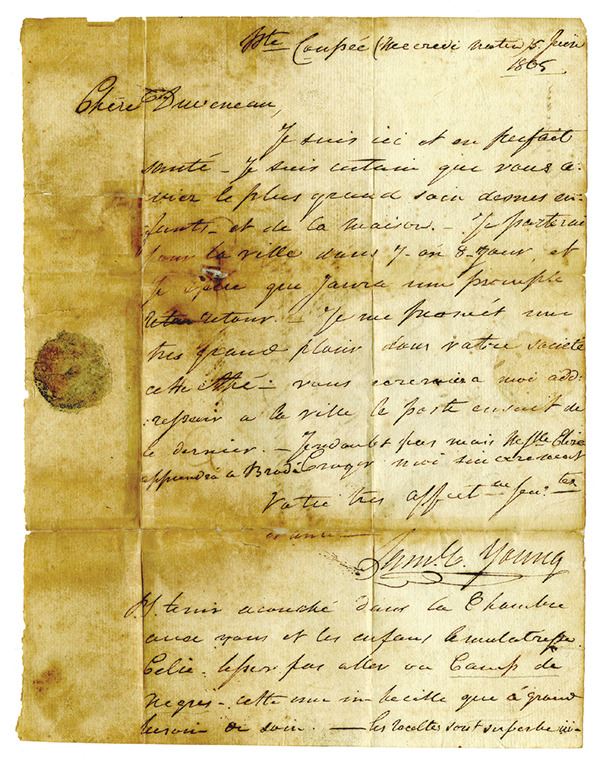 Pte Coupée (Mecredi matin 5. Juin
1805.
Chère Duveneau,
Je suis ici et en parfait
santé – Je suis certain que vous a-
vier le plus grand soin de mes en-
fants – et de la maison. – Je parterai
pour la ville dans 7. ou 8. Jour, et
Je que Jaura une prompte
retour. – Je me promét une
tres grand plaisir dans votre société
cette – vous moi add-
a la ville le poste ensuit de
le dernier. – Je doubt pas mais
apprendra a moi sincerement
Votre tres affect
Saml. Young
P.S. tenir acouché dans la Chambre
avec vous et les enfans le mulatresse
Celie. pas aller au Camp de
Negres – cette une imbecille que a grand
besoin de soin. – les recoltes sont superbe